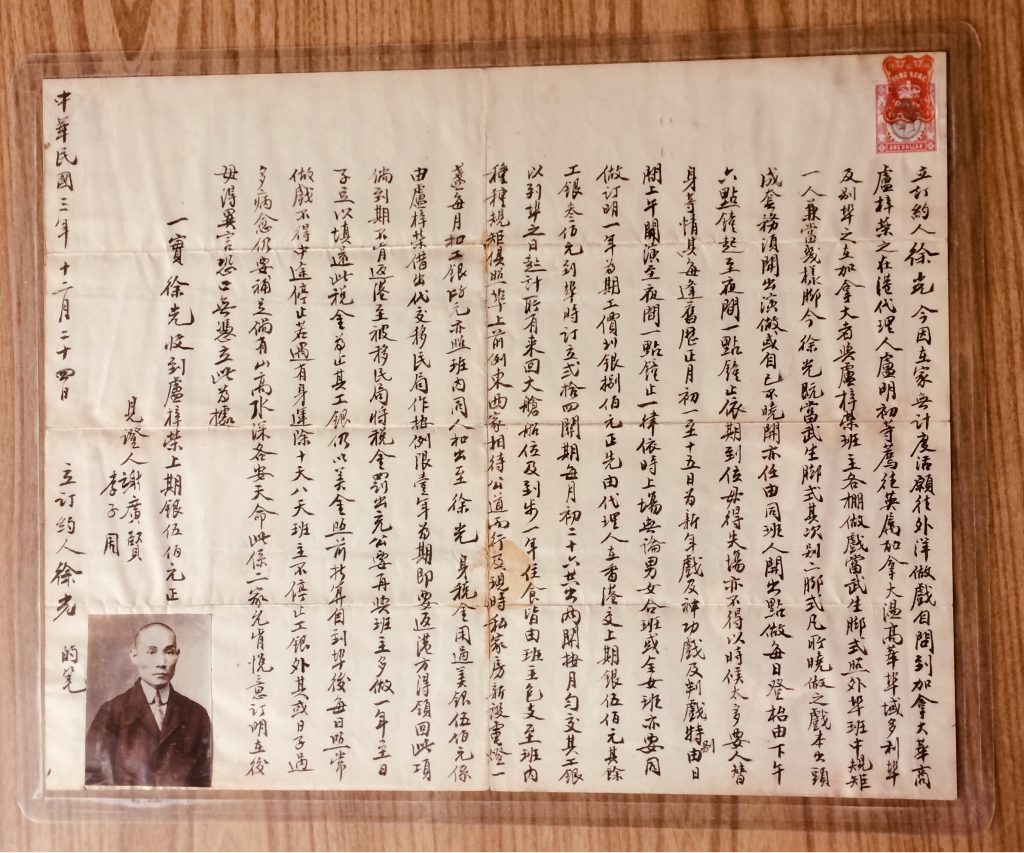 HONG KONG
ONE DOLLAR
立訂約人徐光今因在家無計度活願往外洋做戲自問到加拿大華商
盧梓榮之在港代理人盧明初等薦往英屬加拿大温高華埠域多利埠
及別埠之在加拿大者與盧梓榮班主各棚做戲當武生脚式照外埠班中規矩
一人兼當幾樣脚今徐光既當武生脚式其次別二脚式凡所曉做之戲本出頭
成套務須開出演做或自己不曉開亦任由同班人開出點做每日登枱由下午
六點鐘起至夜間一點鐘止依期到位毋得失場亦不得以時候太多要人替
身等情其每逢舊歷正月初一至十五日為新年戲及神功戲及制戲特別由日
間上午開演至夜間一點鐘止一律依時上場無論男女合班或全女班亦要同
做訂明一年為期工價刘銀捌伯元正先由代理人在香港交上期銀伍伯元其餘
工銀叁伯元到埠時訂立弍拾四關期每月初二十六共出两關按月勻交其工銀
以到埠之日起計所有来回大艙船位及到步一年住食皆由班主包支至班内
種種規矩俱照埠上前例東西家相待公道而行及現時私家房新設電燈一
盞每月扣工銀 元亦照班内同人扣出至徐光身税金用過美銀伍伯元係
由盧梓榮借出代交移民局作按例限壹年為期即要返港方得領回此項
倘到期不肯返港至被移民局將税金罰出充公要再與班主多做一年至
子足以填還此税金為止其工銀仍以美金照前折算自到埠後每日照常
做戲不得中途停止若遇有身運除十天八天班主不停止工銀外其或日子過
多病愈仍要補足倘有山高水深各安天命此係二家允肯愜意訂明立後
毋得異言恐口無憑立此為據
一實徐光收到盧梓榮上期銀伍佰元正
見證人謝廣賢
李子周
立訂約人徐光的筆
中華民國三年十二月二十四日